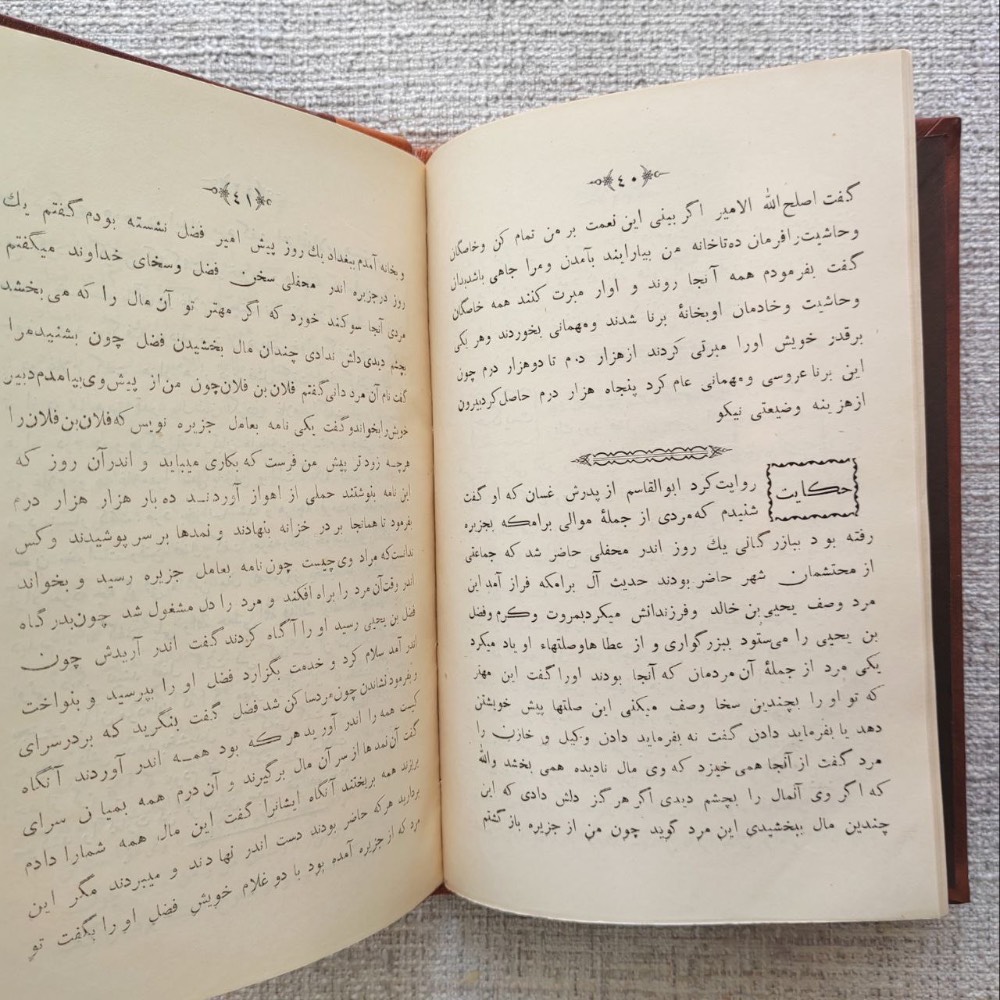 ٤٠
گفت اصلح الله الامیر اگر بینی این نعمت بر من تمام کن وخاصگان
وحاشیت رافرمان ده تاخانه من بیارایند بآمدن ومرا جاهی باشدبدان
گفت بفرمودم همه آنجا روند و اوار مبرت کنند همه خاصگان
وحاشیت وخادمان اوبخانهٔ برنا شدند ومهمانی بخوردند وهر یکی
برقدر خویش اورا مبرتی کردند ازهزار درم تا دوهزار درم چون
این برنا عروسی ومهمانی عام کرد پنجاه هزار درم حاصل کردبیرون
ازهزینه وضیعتی نیکو
حکایت
روایت کرد ابوالقاسم از پدرش غسان که او گفت
شنیدم که مردی از جملهٔ موالی برامکه بجزیره
رفته بود ببازرگانی یك روز اندر محفلی حاضر شد که جماعتی
از محتشمان شهر حاضر بودند حدیث آل برامکه فراز آمد این
مرد وصف یحیی بن خالد وفرزندانش میکردبمروت وکرم وفضل
بن یحیی را می‌ستود ببزرگواری و از عطا هاوصلتهاء او یاد میکرد
یکی مرد از جملهٔ آن مردمان که آنجا بودند اورا گفت این مهتر
که تو او را بچندین سخا وصف میکنی این صلتها پیش خویشتن
دهد یا بفرماید دادن گفت نه بفرماید دادن وکیل و خازن را
مرد گفت از آنجا همی خیزد که وی مال نادیده همی بخشد والله
که اگر وی آنمال را بچشم دیدی اگر هرگز دلش دادی که این
چندین مال ببخشیدی این مرد گوید چون من از جزیره بازگشتم
٤١
وبخانه آمدم ببغداد یك روز پیش امیر فضل نشسته بودم گفتم یك
روز درجزیره اندر محفلی سخن فضل وسخای خداوند میگفتم
مردی آنجا سوکند خورد که اگر مهتر تو آن مال را که می بخشد
بچشم دیدی دلش ندادی چندان مال بخشیدن فضل چون بشنیدمرا
گفت نام آن مرد دانی گفتم فلان بن فلان چون من از پیش وی بیامدم دبیر
خویش رابخواندوگفت یکی نامه بعامل جزیره نویس که فلان بن فلان را
هرچه زودتر پیش من فرست که بکاری میباید و اندرآن روز که
این نامه بنوشتند حملی از اهواز آوردند ده بار هزار هزار درم
بفرمود تا همانجا بر در خزانه بنهادند و نمدها بر سر پوشیدند وکس
ندانست که مراد وی چیست چون نامه بعامل جزیره رسید و بخواند
اندر وقت آن مرد را براه افکند و مرد را دل مشغول شد چون بدرگاه
فضل بن یحیی رسید او را آگاه کردند گفت اندر آریدش چون
اندر آمد سلام کرد و خدمت بگزارد فضل او را بپرسید و بنواخت
و بفرمود نشاندن چون مردساکن شد فضل گفت بنگرید که بردرسرای
کیست همه را اندر آورید هرکه بود همه اندر آوردند آنگاه
گفت آن نمد ها از سر آن مال برگیرند و آن درم همه بمیان سرای
همه بریختند آنگاه ایشانرا گفت این مال همه شمارا دادم
بردارید هرکه حاضر بودند دست اندر نهادند و میبردند مگر این
مرد که از جزیره آمده بود با دو غلام خویش فضل او را بگفت تو